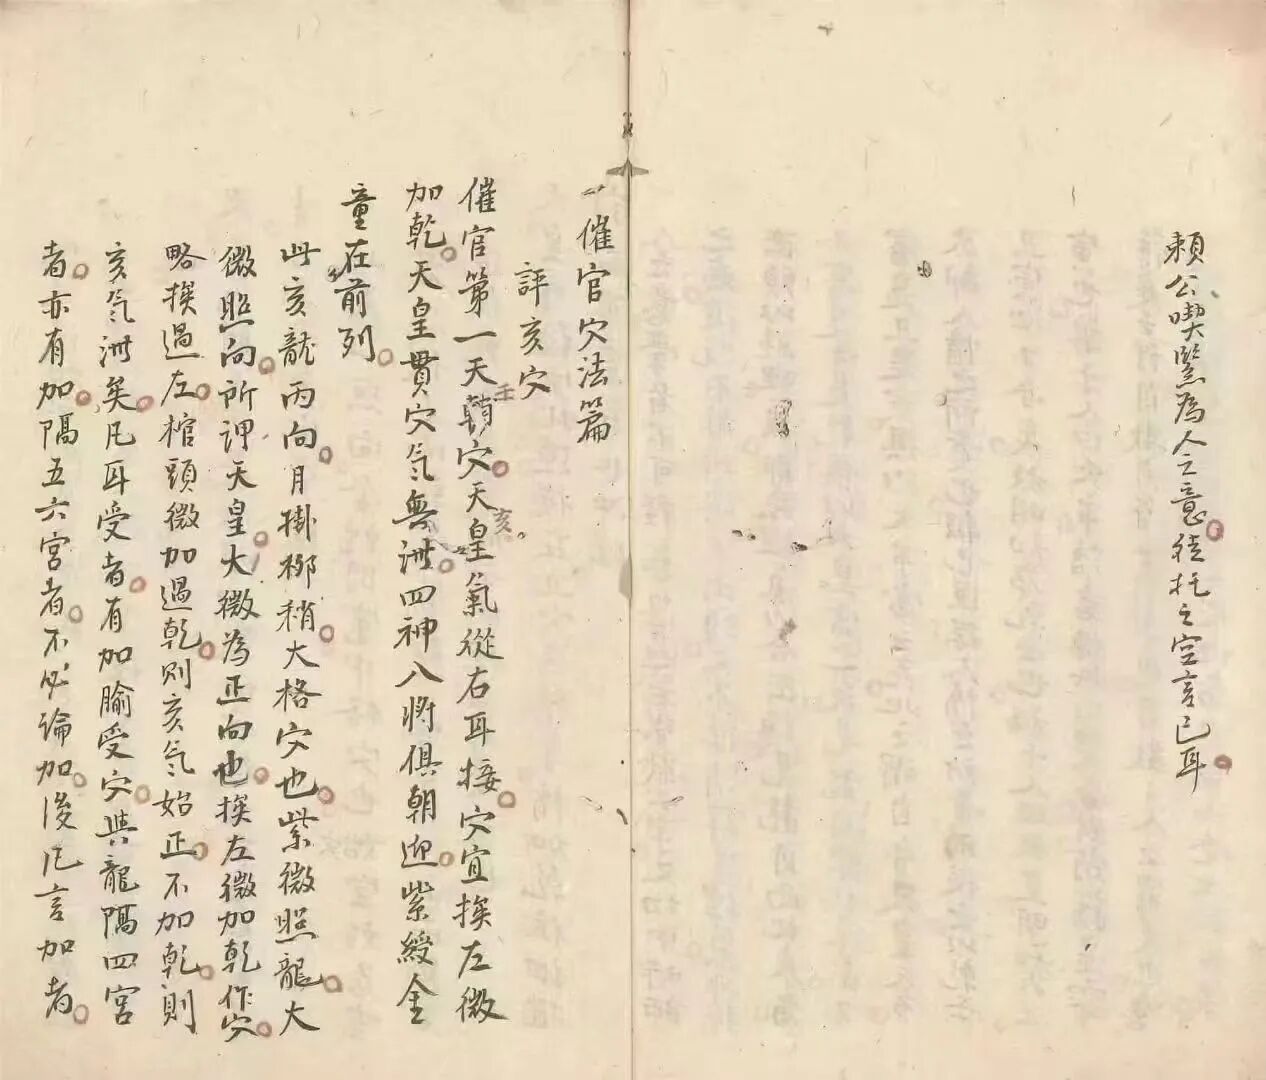 賴公喫緊為人之意徒托之空言已耳
一催官穴法篇
評亥穴
催官第一天輔穴天皇氣從右耳接穴宜挨左微
壬
亥
加乾天皇貫穴氣無泄四神八將俱朝迎紫綬金
童在前列
此亥龍丙向月掛柳稍大格穴也紫微照龍大
微照向所謂天皇大微為正向也挨左微加乾作穴
略挨過左棺頭微加過乾則亥氣始正不加乾則
亥氣泄矣凡耳受者有加腧受穴與龍隔四宮
者亦有加隔五六宮者不必論加後凡言加者